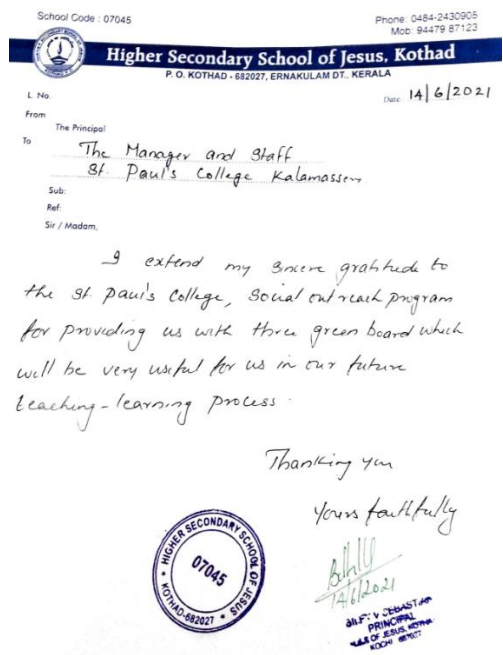 School Code : 07045
Phone: 0484-2430905
Mob: 94479 87123
Higher Secondary School of Jesus, Kothad
P. O. KOTHAD - 682027, ERNAKULAM DT., KERALA
L. No.
Date 14/6/2021
From
The Principal
To
The Manager and Staff
St. Paul's College Kalamassery
Sub:
Ref:
Sir / Madam,
I extend my sincere gratitude to
the St. Paul's College, Social outreach program
for providing us with three green board which
will be very useful for us in our future
teaching-learning process.
Thanking you
Yours faithfully
14/6/2021
HIGHER SECONDARY SCHOOL OF JESUS
07045
KOTHAD-682027
PRINCIPAL
OF JESUS, KOTHAD
KOCHI